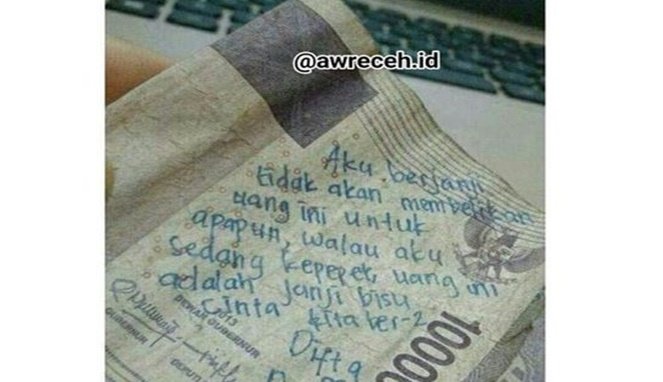 @awreceh.id
Aku berjanji
tidak akan membelikan
uang ini untuk
apapun, walau aku
sedang kepepet, uang ini
adalah janji bisu
cinta kita ber-2
Difta
2013
DEWAN GUBERNUR
GUBERNUR
DEPUTI